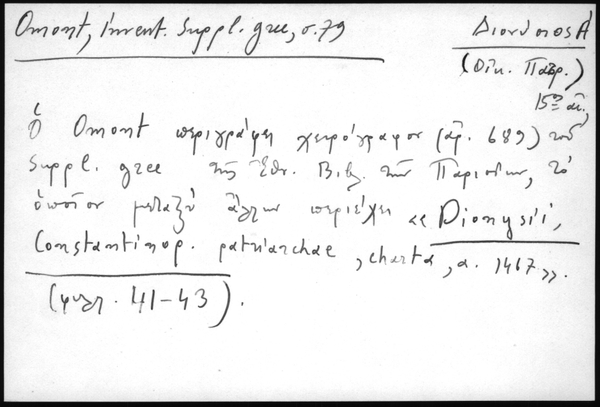 Omont, Invent. Suppl. grec, σ. 79
Διονύσιος Α´
(Οἰκ. Πατρ.)
15ος αἰ.
Ὁ Omont περιγράφει χειρόγραφον (ἀρ. 689) τοῦ
Suppl. grec τῆς Ἐθν. Βιβ. τῶν Παρισίων, τὸ
ὁποῖον μεταξὺ ἄλλων περιέχει «Dionysii,
Constantinop. patriarchae, charta, a. 1467».
(φυλ. 41-43).